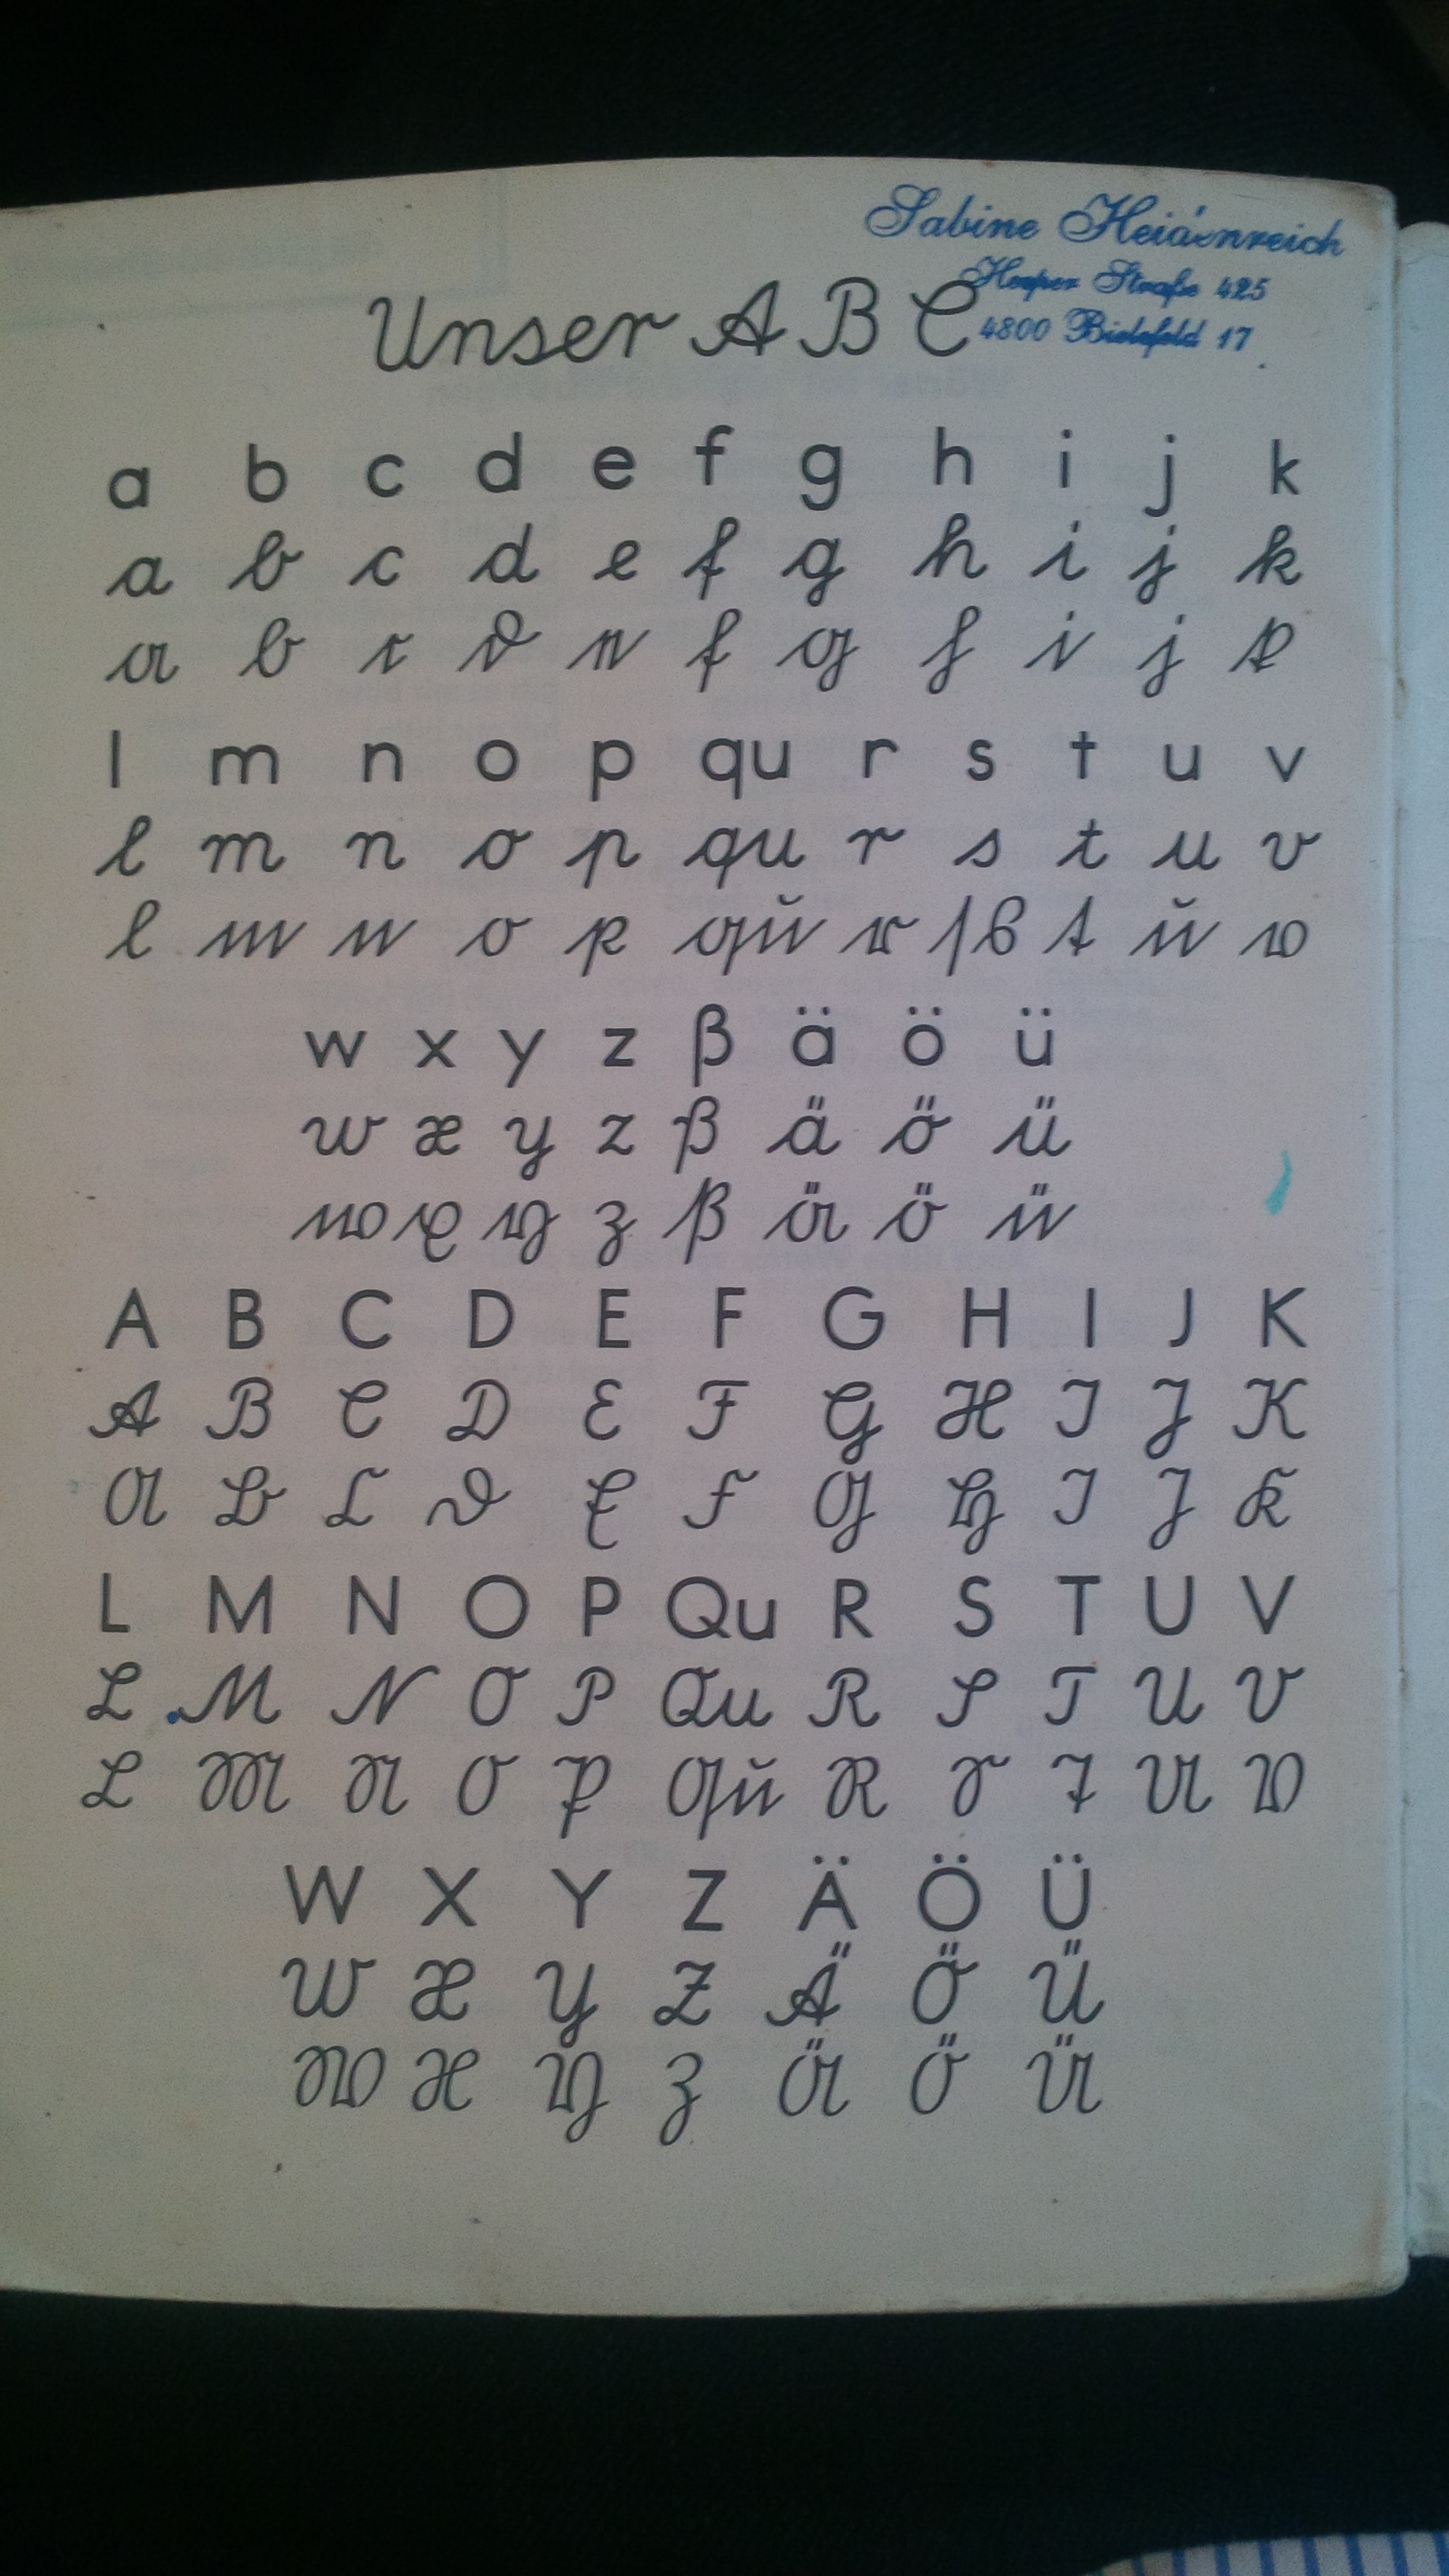 Sabine Heidenreich
Heeper Straße 425
4800 Bielefeld 17
Unser A B C
a b c d e f g h i j k
a b c d e f g h i j k
a b c d e f g h i j k
l m n o p qu r s t u v
l m n o p qu r s t u v
l m n o p qu r ſ s t u v
w x y z ß ä ö ü
w x y z ß ä ö ü
w x y z ß ä ö ü
A B C D E F G H I J K
A B C D E F G H I J K
A B C D E F G H I J K
L M N O P Qu R S T U V
L M N O P Qu R S T U V
L M N O P Qu R S T U V
W X Y Z Ä Ö Ü
W X Y Z Ä Ö Ü
W X Y Z Ä Ö Ü